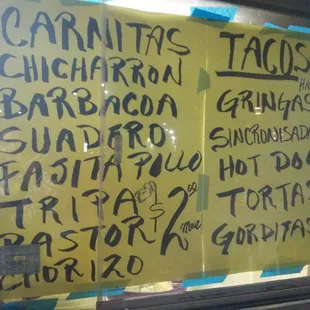 CARNITAS
CHICHARRON
BARBACOA
SUADERO
FAJITA POLLO
TRIPA
PASTOR
CHORIZO
$2
TACOS
GRINGAS
SINCRONISADA
HOT DO
TORTA
GORDITAS